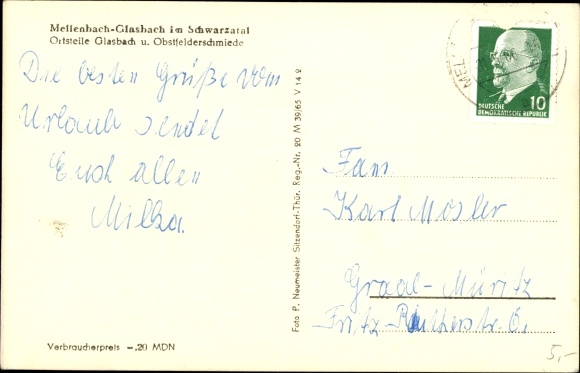 Mellenbach-Glasbach im Schwarzatal
Ortsteile Glasbach u. Obstfelderschmiede
Die besten Grüße vom
Urlaub sendet
Euch allen
Milka.
Verbraucherpreis -,20 MDN
Foto P. Neumeister Sitzendorf-Thür. Reg.-Nr. 20 M 39/65 V 14 2
MEL
DEUTSCHE
DEMOKRATISCHE REPUBLIK
10
Fam.
Karl Mosler
Graal-Müritz
Fritz-Reuterstr. 6,
5,-